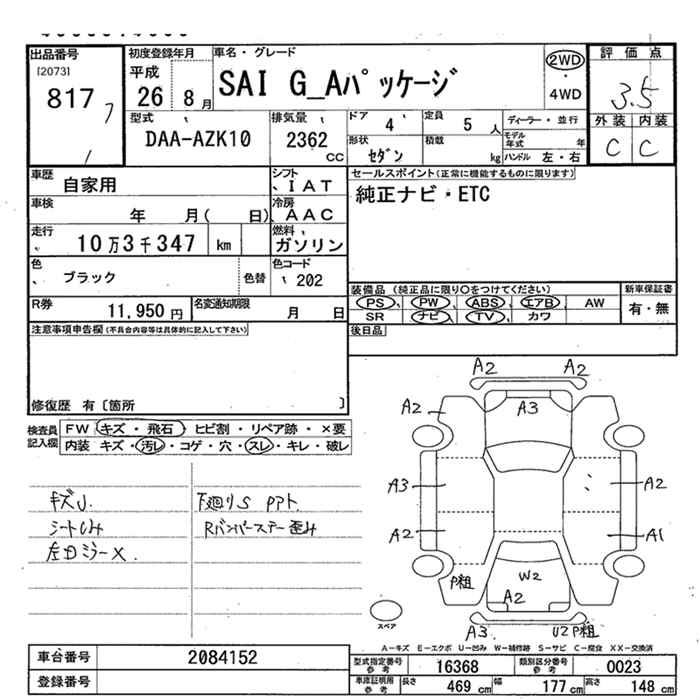 出品番号 初度登録年月 車名・グレード 評価点
[2073] 平成 2WD
817 26 8月 SAI G_Aパッケージ ・ 3.5
4WD
型式 排気量 ドア 4 定員 5人 ディーラー・並行 外装 内装
DAA-AZK10 2362 CC 形状 セダン 積載 kg モデル年式 年 C C
ハンドル 左・右
車歴 自家用 シフト IAT セールスポイント(正常に機能するものに限ります)
車検 年 月( 日) 冷房 AAC 純正ナビ・ETC
走行 10万3千347 km 燃料 ガソリン
色 ブラック 色替 色コード 202
装備品(純正品に限り○をつけてください) 新車保証書
R券 11,950円 名変通知期限 月 日 PS PW ABS エアB AW 有・無
SR ナビ TV カワ
注意事項申告欄(不具合内容等は具体的に記入して下さい) 後日品
修復歴 有〔箇所 〕
検査員記入欄 FW キズ・飛石・ヒビ割・リペア跡・×要
内装 キズ・汚レ・コゲ・穴・スレ・キレ・破レ
A2 A2
A2 A3 A2
A3 A2
A2 A1
P粗 W2
A2
スペア A3 U2 P粗
キズU. 下廻りS PPト.
シートしみ Rバンパーステー歪み
左ドミラーX.
A-キズ E-エクボ U-凹み W-補修跡 S-サビ C-腐食 XX-交換済
車台番号 2084152 型式指定番号 参考 16368 類別区分番号 参考 0023
登録番号 車庫証明用 参考 長さ 469cm 幅 177cm 高さ 148cm